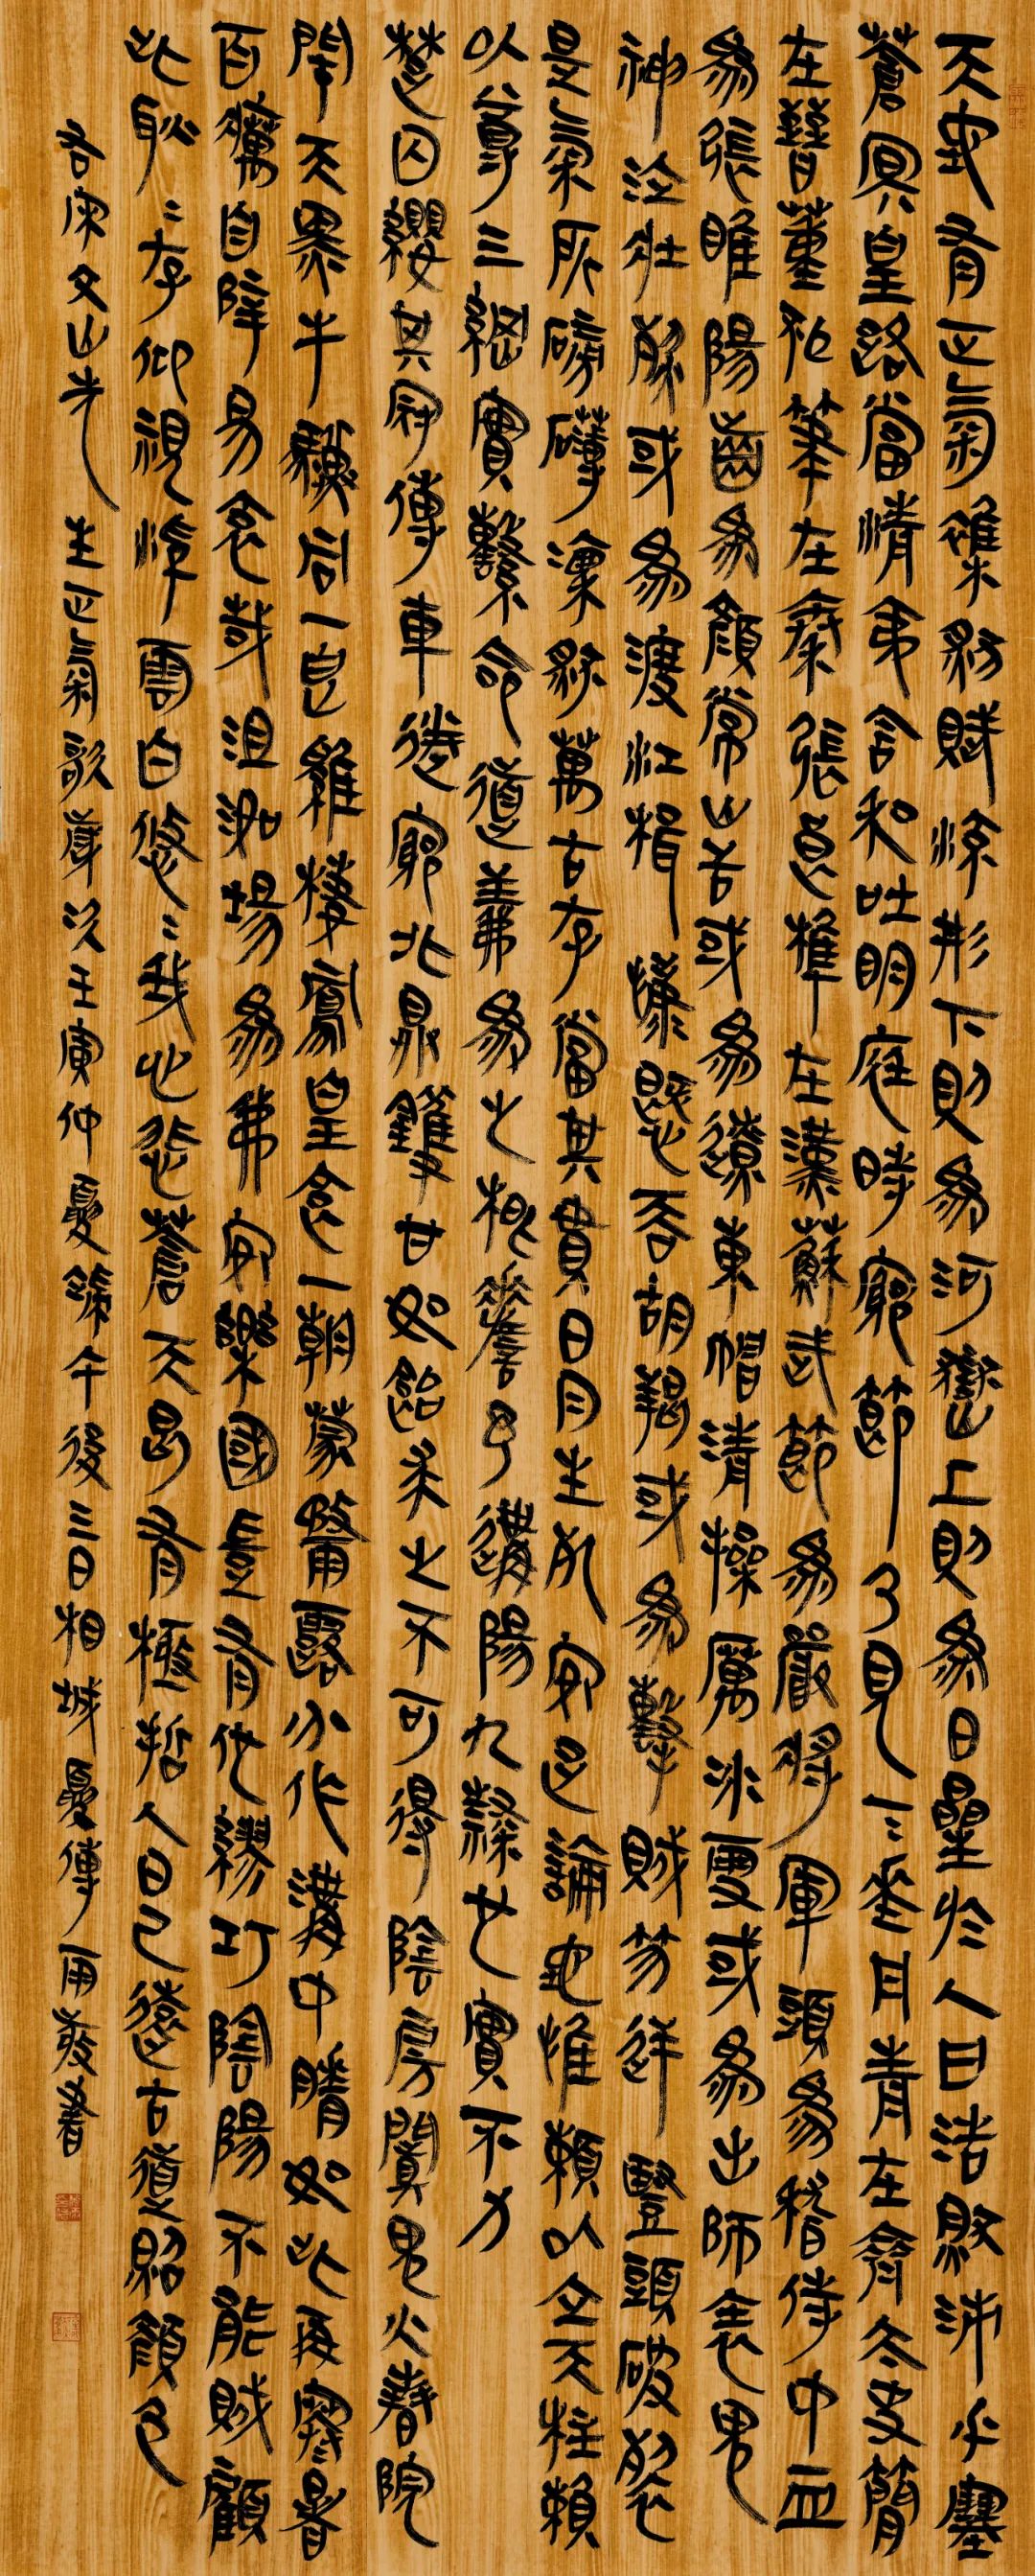 天地有正氣雜然賦流形下則為河嶽上則為日星於人曰浩然沛乎塞
蒼冥皇路當清夷含和吐明庭時窮節乃見一〻垂丹青在齊太史簡
在晉董狐筆在秦張良椎在漢蘇武節為嚴將軍頭為嵇侍中血
為張睢陽齒為顏常山舌或為遼東帽清操厲冰雪或為出師表鬼
神泣壯烈或為渡江楫慷慨吞胡羯或為擊賊笏逆豎頭破裂
是氣所磅礴凜烈萬古存當其貫日月生死安足論地維賴以立天柱賴
以尊三綱實繫命道義為之根嗟予遘陽九隸也實不力
楚囚纓其冠傳車送窮北鼎鑊甘如飴求之不可得陰房闃鬼火春院
閟天黑牛驥同一皂雞棲鳳皇食一朝蒙霧露分作溝中瘠如此再寒暑
百癘自辟易哀哉沮洳場為我安樂國豈有他繆巧陰陽不能賊顧
此耿〻存仰視浮雲白悠〻我心悲蒼天曷有極哲人日已遠古道照顏色
右宋文山先生正氣歌歲次壬寅仲夏端午後三日相城夏傳雨敬書